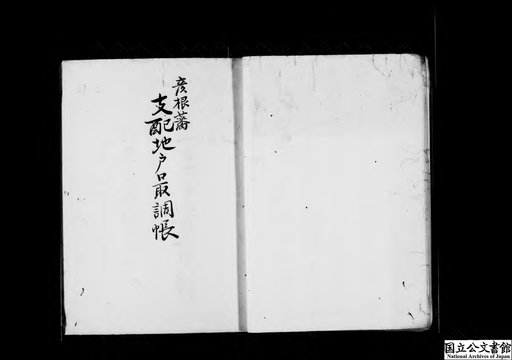 彦根藩
支配地戸口取調帳
国立公文書館
National Archives of Japan